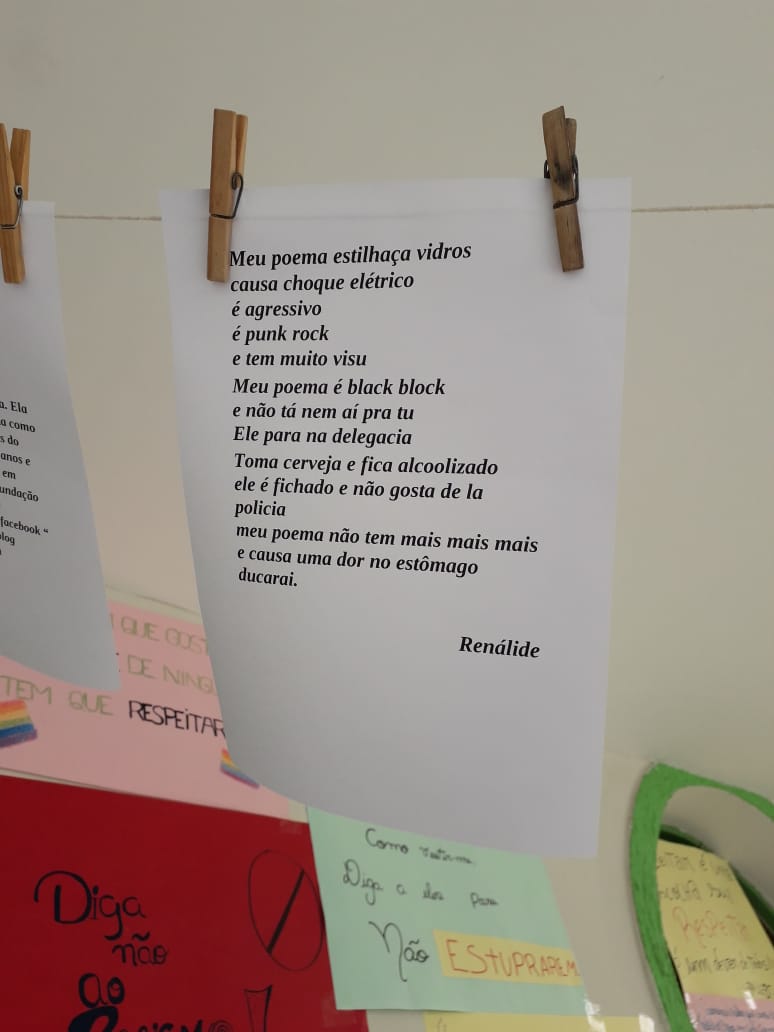 Meu poema estilhaça vidros
causa choque elétrico
é agressivo
é punk rock
e tem muito visu
Meu poema é black block
e não tá nem aí pra tu
Ele para na delegacia
Toma cerveja e fica alcoolizado
ele é fichado e não gosta de la
policia
meu poema não tem mais mais mais
e causa uma dor no estômago
ducarai.
Renálide
a. Ela
a como
s do
anos e
em
undação
facebook “
log
QUE GOST
DE NINGU
TEM QUE RESPEITAR
Diga
não
ao
Como
Diga a eles para
Não ESTUPRAREM
RESPEIT